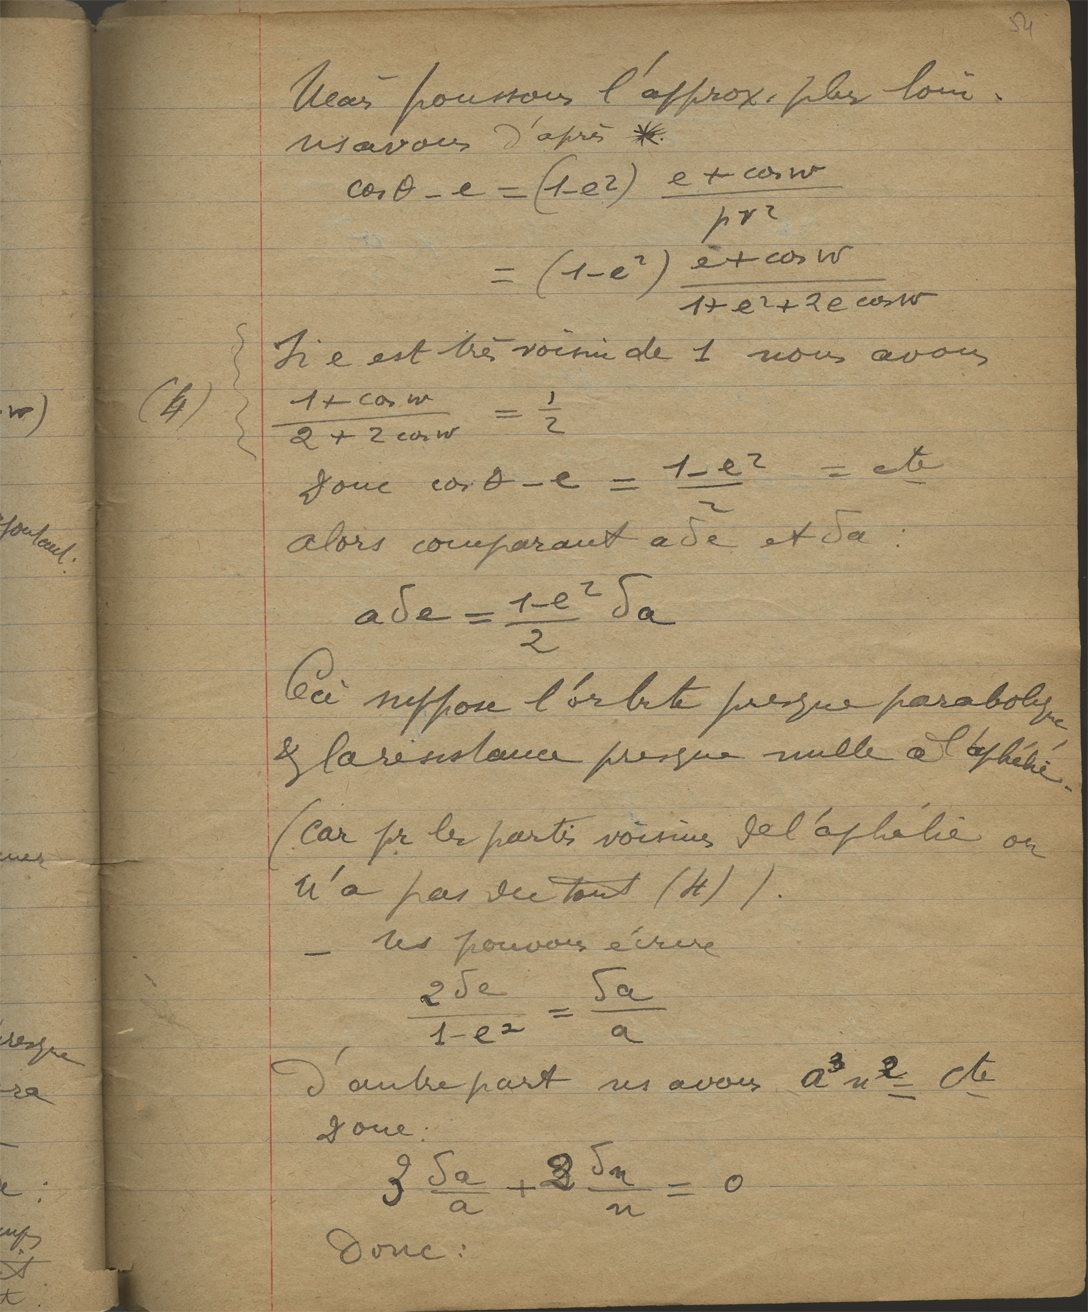 54
Mais poussons l'approx. plus loin.
ns avons d'après *.
cos θ - e = (1-e²) (e + cos w)/(pr²)
= (1-e²) (e + cos w)/(1+e²+2e cos w)
Si e est très voisin de 1 nous avons
(4) (1+cos w)/(2+2 cos w) = 1/2
Donc cos θ - e = (1-e²)/2 = cte
alors comparant aδe et δa :
aδe = (1-e²)/2 δa
Ceci suppose l'orbite presque parabolique
& la résistance presque nulle à l'aphélie.
(car pr les partis voisins de l'aphélie on
n'a pas du tout (4)).
- ns pouvons écrire
2δe/(1-e²) = δa/a
D'autre part ns avons a³n² = cte
Donc :
3 δa/a + 2 δn/n = 0
Donc :
w)
ajoutant :
resque
ra
e :